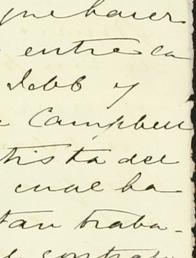 que hacer
entre la
Jebb y
Campbell
tista del
cual ha
tan traba-